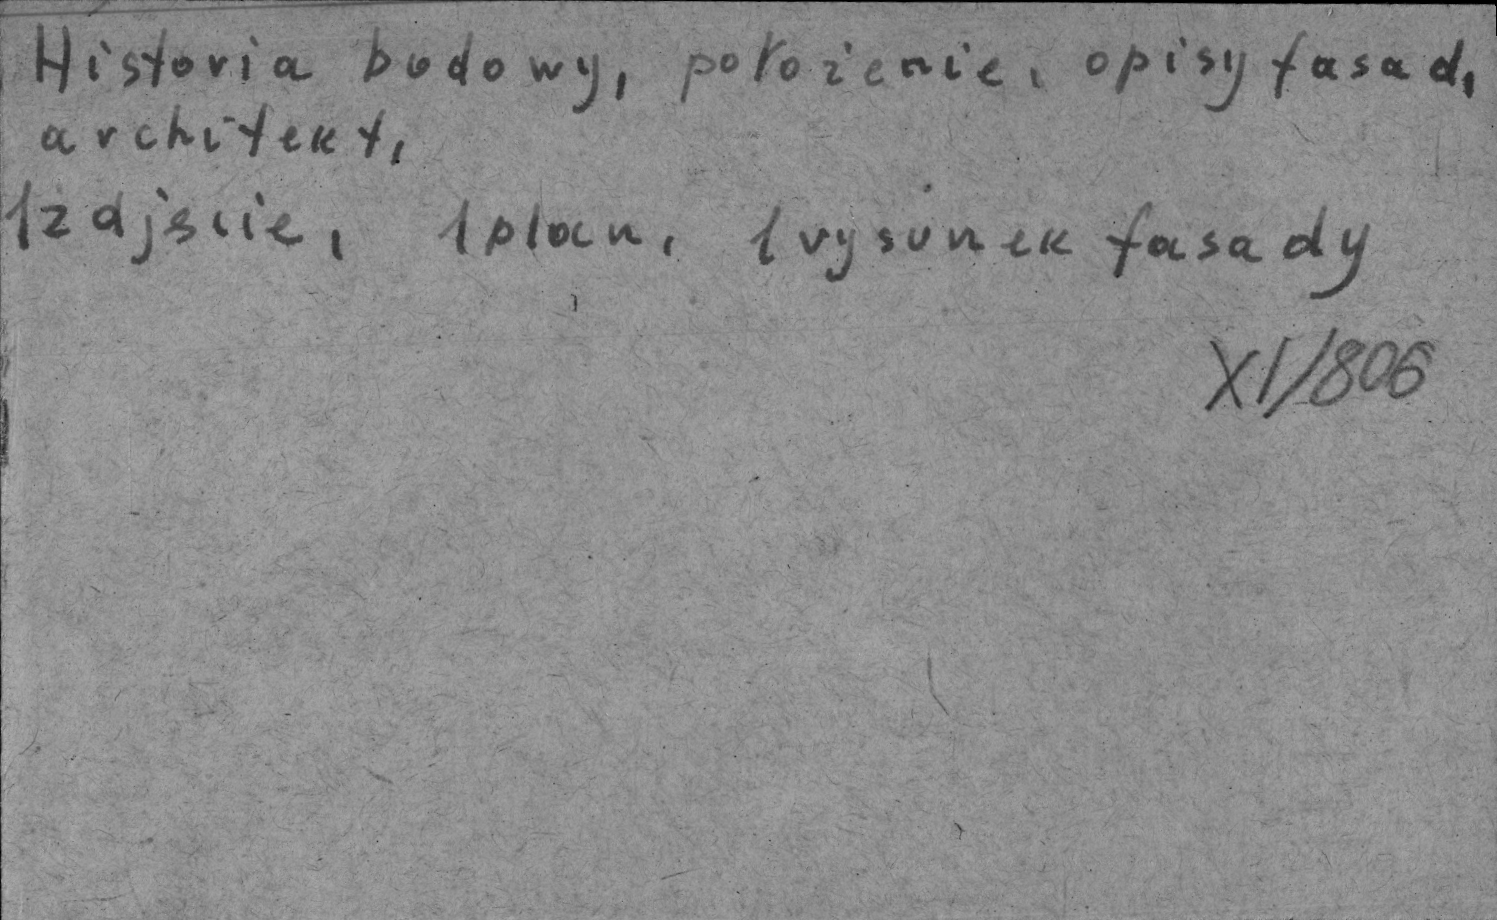 Historia budowy, położenie, opisy fasad,
architekt,
1 zdjęcie, 1 plan, 1 rysunek fasady
XI/806